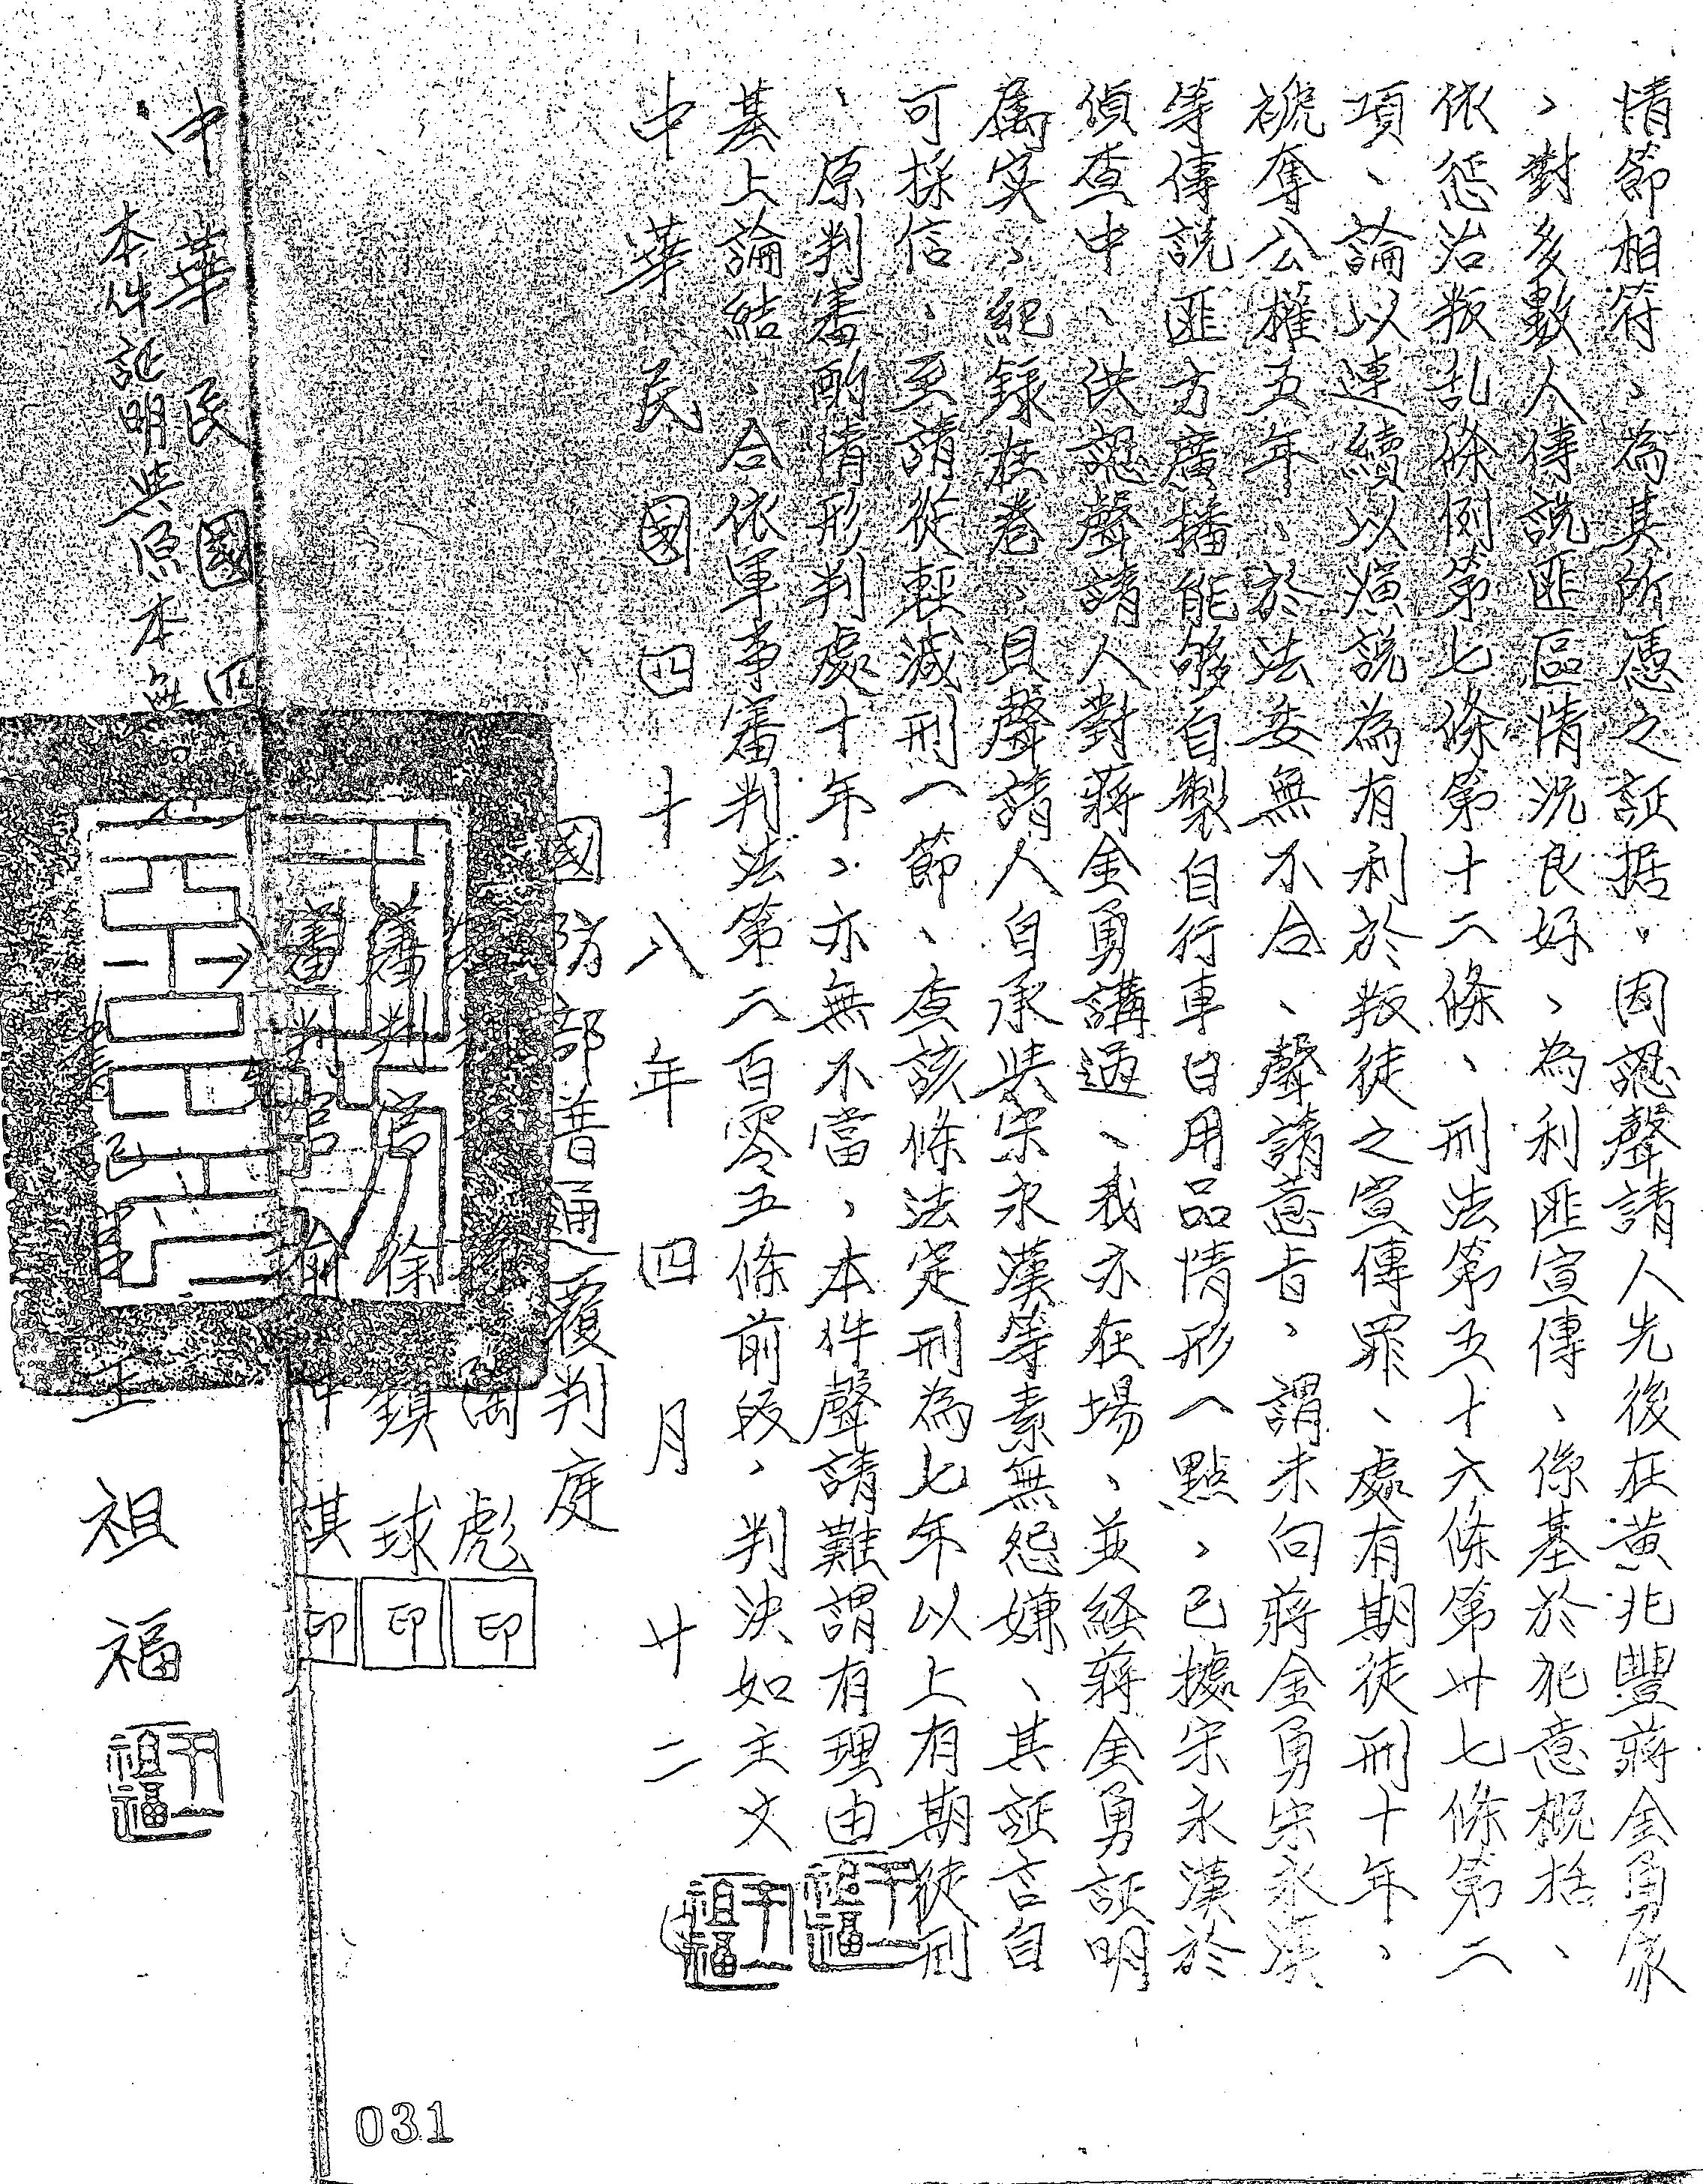 情節相符、為其所憑之証据。因認聲請人先後在黃兆豐蔣金勇家
、對多數人傳說匪區情況良好、為利匪宣傳、係基於犯意概括、
依懲治叛乱條例第七條第十二條、刑法第五十六條第卅七條第二
項、論以連續以演說為有利於叛徒之宣傳罪、處有期徒刑十年、
褫奪公權五年、於法委無不合、聲請意旨、謂未向蔣金勇宋永漢
等傳説匪方廣播能够自製自行車日用品情形一點、已據宋永漢於
偵查中、供認聲請人對蔣金勇講過、我亦在場、並経蔣金勇証明
属实、紀録在卷、且聲請人自承與宋永漢等素無怨嫌、其証言自
可採信、至請從輕減刑一節、查該條法定刑為七年以上有期徒刑
、原判審酌情形判處十年、亦無不當、本件聲請難謂有理由
基上論結、合依軍事審判法第二百零五條前段、判決如主文
中華民國四十八年四月廿二
國防部普通覆判庭
彪 印
審判官 徐鎮球 印
審判官 俞 祺 印
中華民國四
本件証明與原本無
王祖福
031